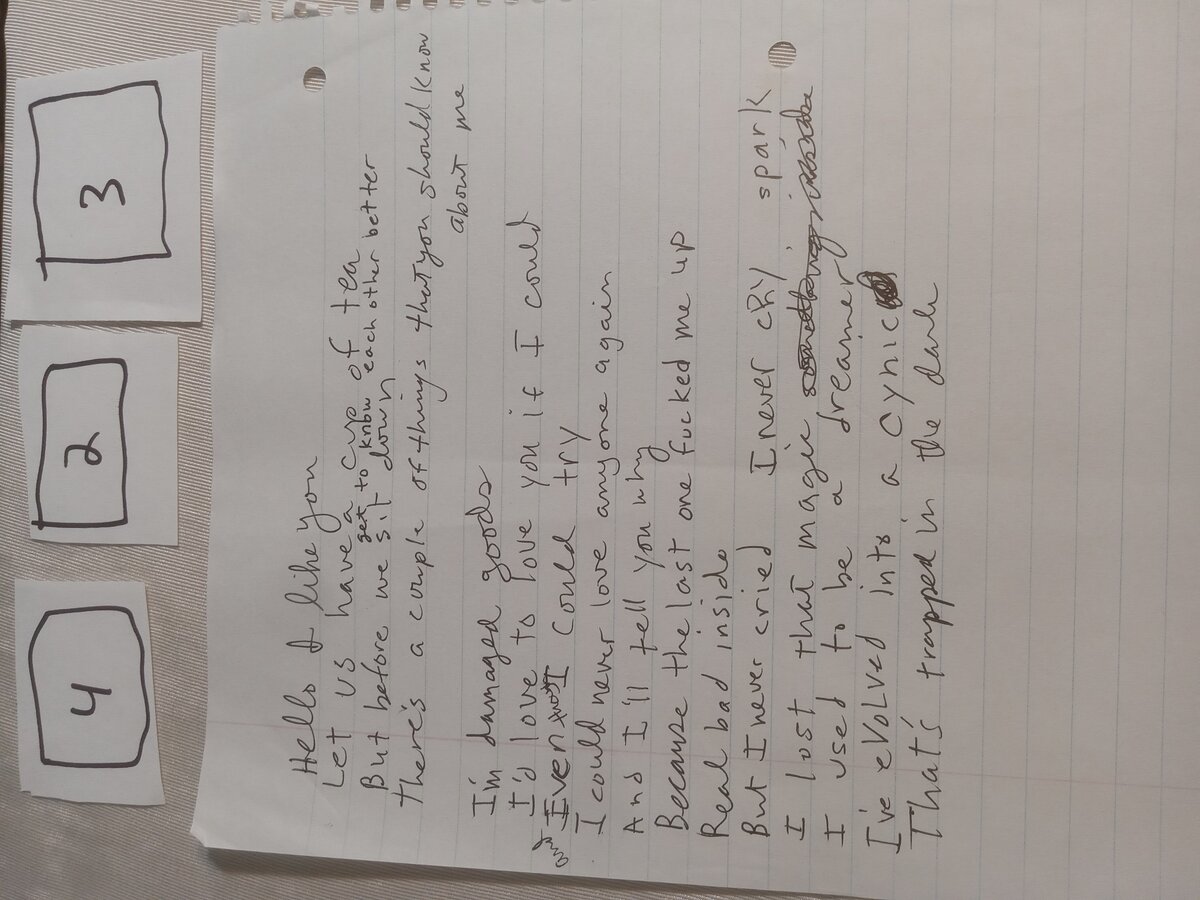 4
2
3
Hello I like you
Let us have a cup of tea
get to know each other better
But before we sit down
there's a couple of things that you should know
about me
I'm damaged goods
I'd love to love you if I could
Even I could try
I could never love anyone again
And I'll tell you why
Because the last one fucked me up
Real bad inside
But I never cried I never cry
spark
I lost that magic something inside
I used to be a dreamer
I've evolved into a cynic
That's trapped in the dark